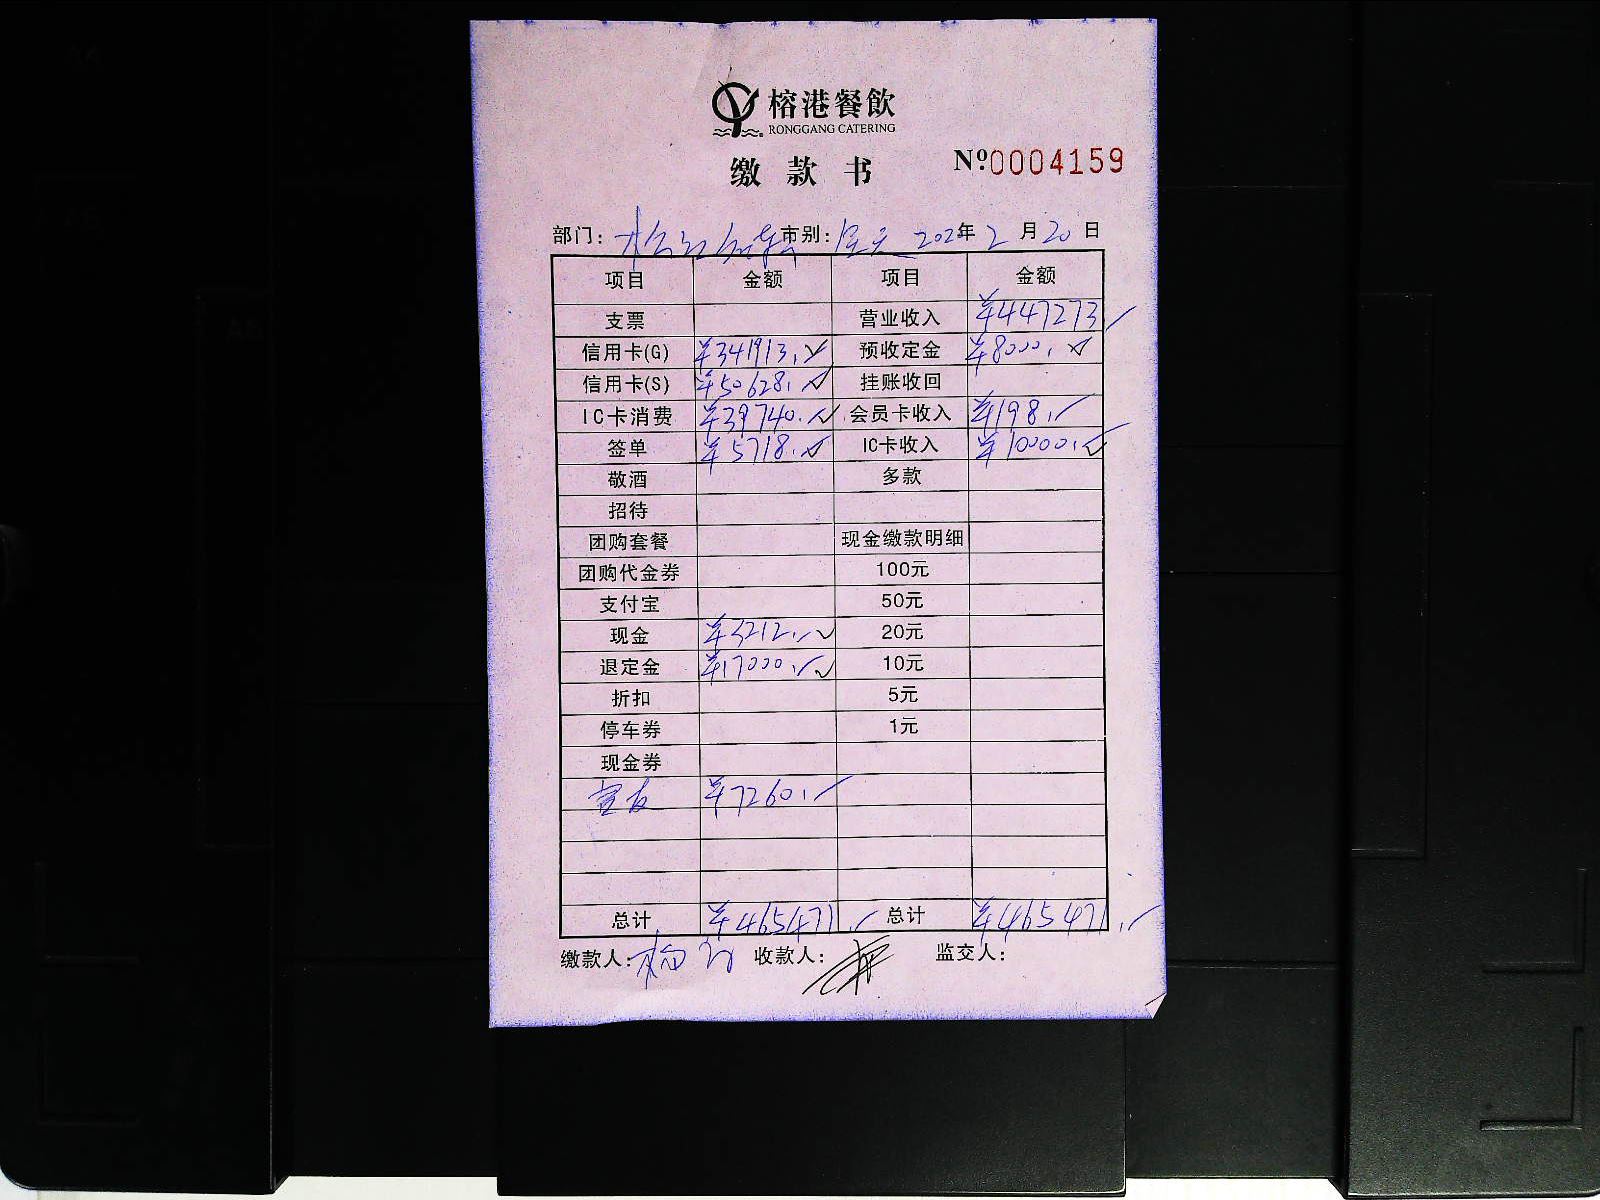 榕港餐飲
RONGGANG CATERING
缴款书 Nº0004159
部门: 市别: 全天 年 2 月 20 日
项目 金额 项目 金额
支票 营业收入 ¥447273
信用卡(G) ¥341913. 预收定金 ¥8000.
信用卡(S) ¥50628. 挂账收回
IC卡消费 ¥39740. 会员卡收入 ¥198.
签单 ¥5718. IC卡收入 ¥10000.
敬酒 多款
招待
团购套餐 现金缴款明细
团购代金券 100元
支付宝 50元
现金 ¥3212. 20元
退定金 ¥17000. 10元
折扣 5元
停车券 1元
现金券
¥7260.
总计 ¥465471. 总计 ¥465471.
缴款人: 收款人: 监交人: